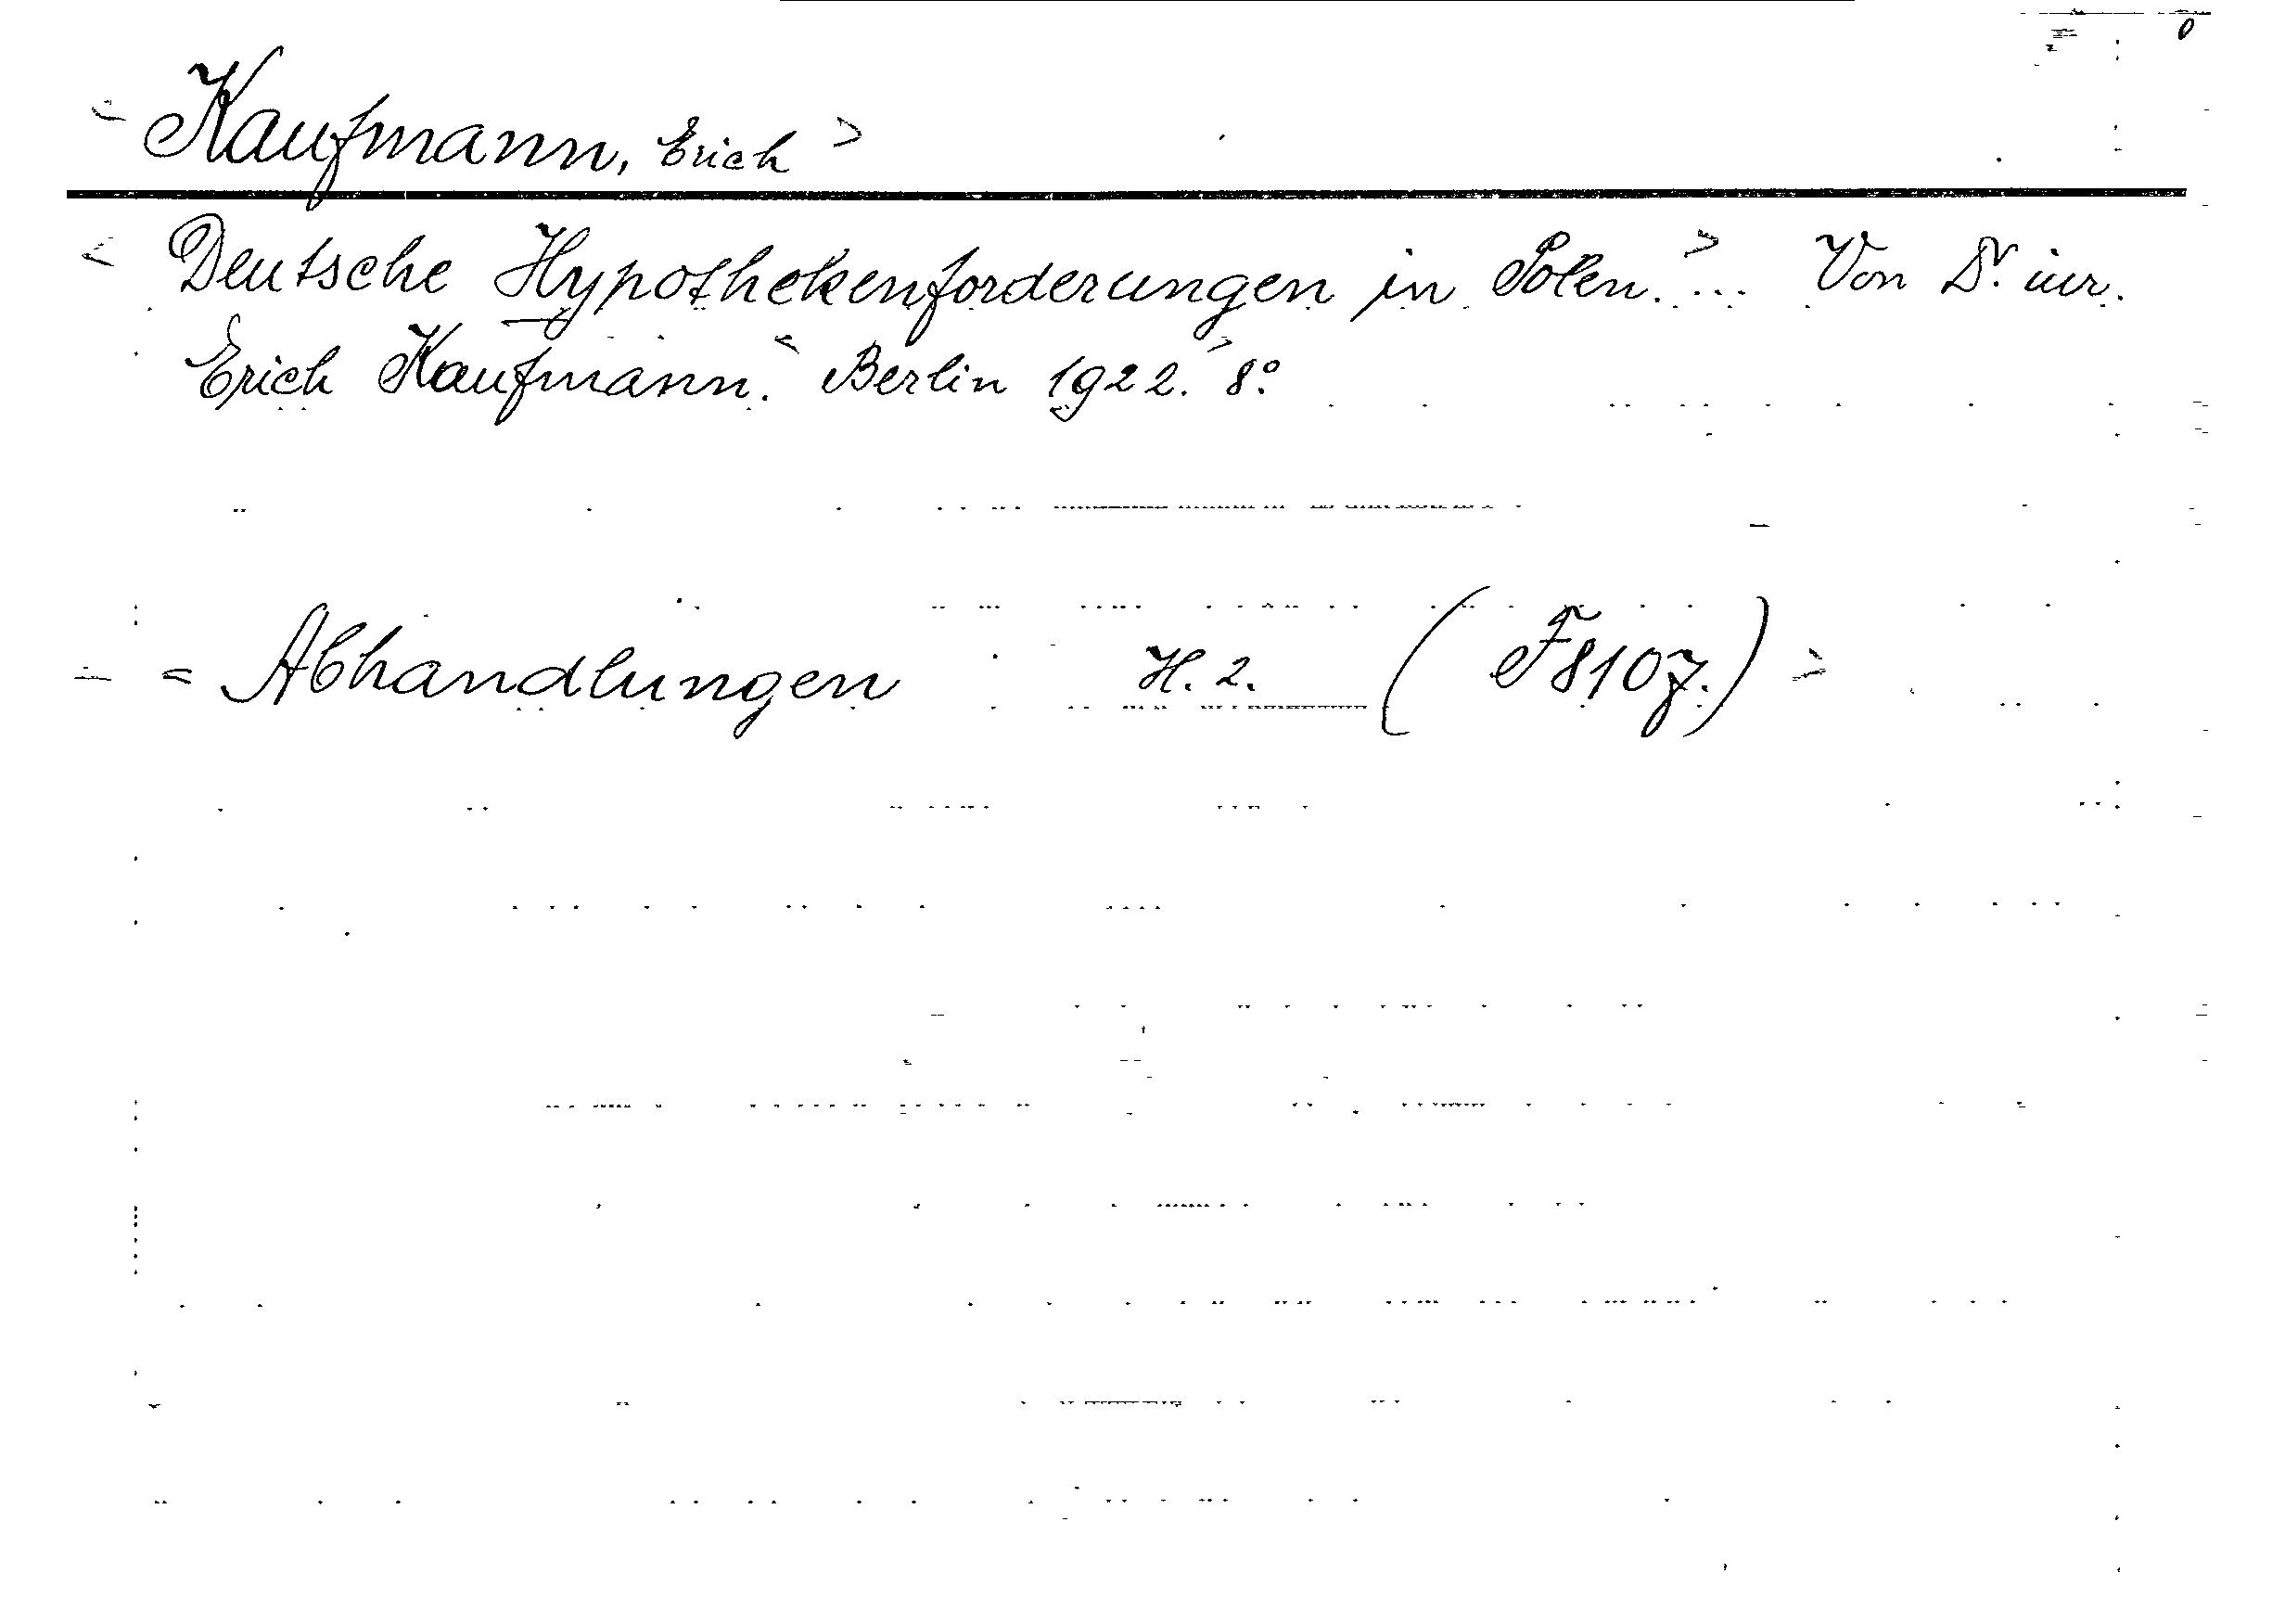 < Kaufmann, Erich >
< Deutsche Hypothekenforderungen in Polen. > ... Von Dr. iur.
Erich Kaufmann. < Berlin 1922. > 8°.
= Abhandlungen H. 2. (F8107.) >